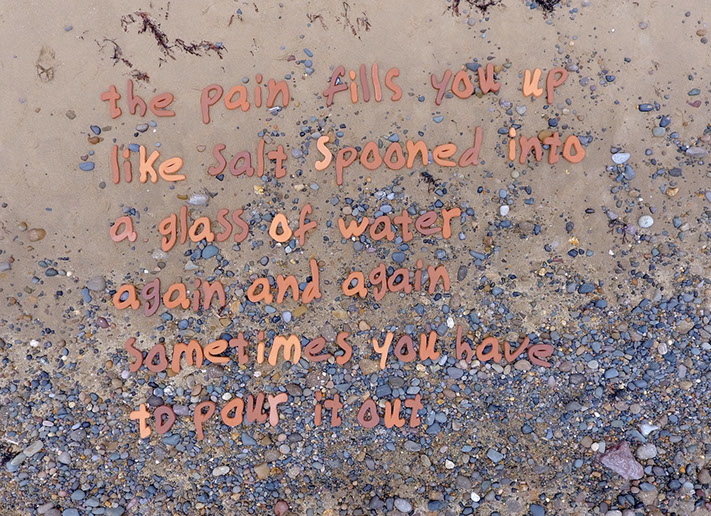 the pain fills you up
like salt spooned into
a glass of water
again and again
sometimes you have
to pour it out